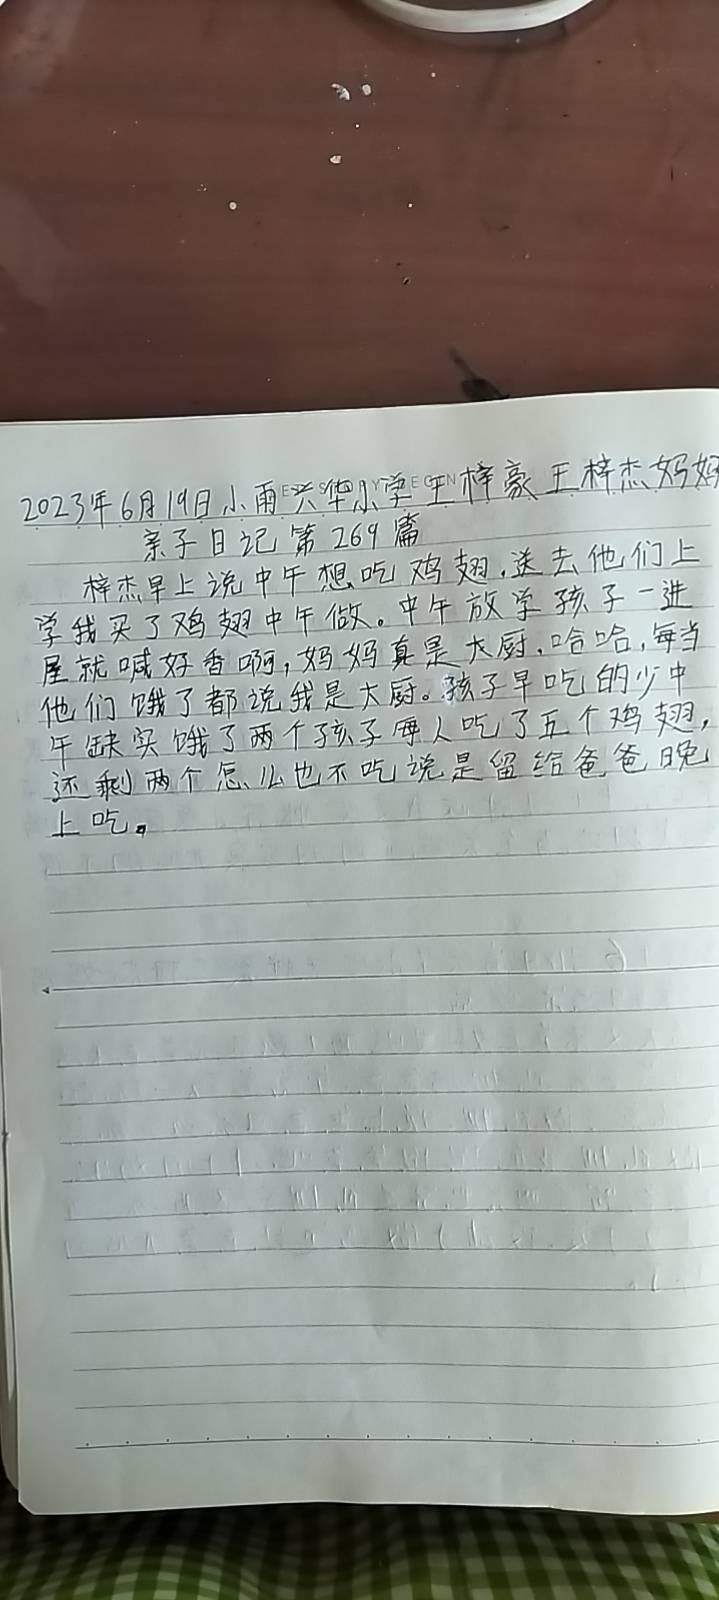 2023年6月19日小雨兴华小学王梓豪王梓杰妈妈
亲子日记第269篇
梓杰早上说中午想吃鸡翅.送去他们上
学我买了鸡翅中午做。中午放学孩子一进
屋就喊好香啊,妈妈真是大厨.哈哈,每当
他们饿了都说我是大厨。孩子早吃的少中
午缺实饿了两个孩子每人吃了五个鸡翅,
还剩两个怎么也不吃说是留给爸爸晚
上吃。